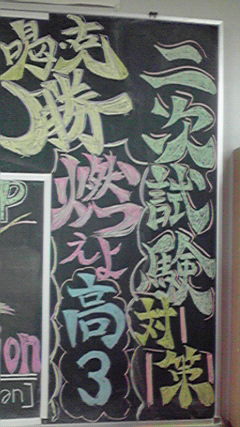 二次試験対策
燃えよ高3
喝・克
勝
P
ion